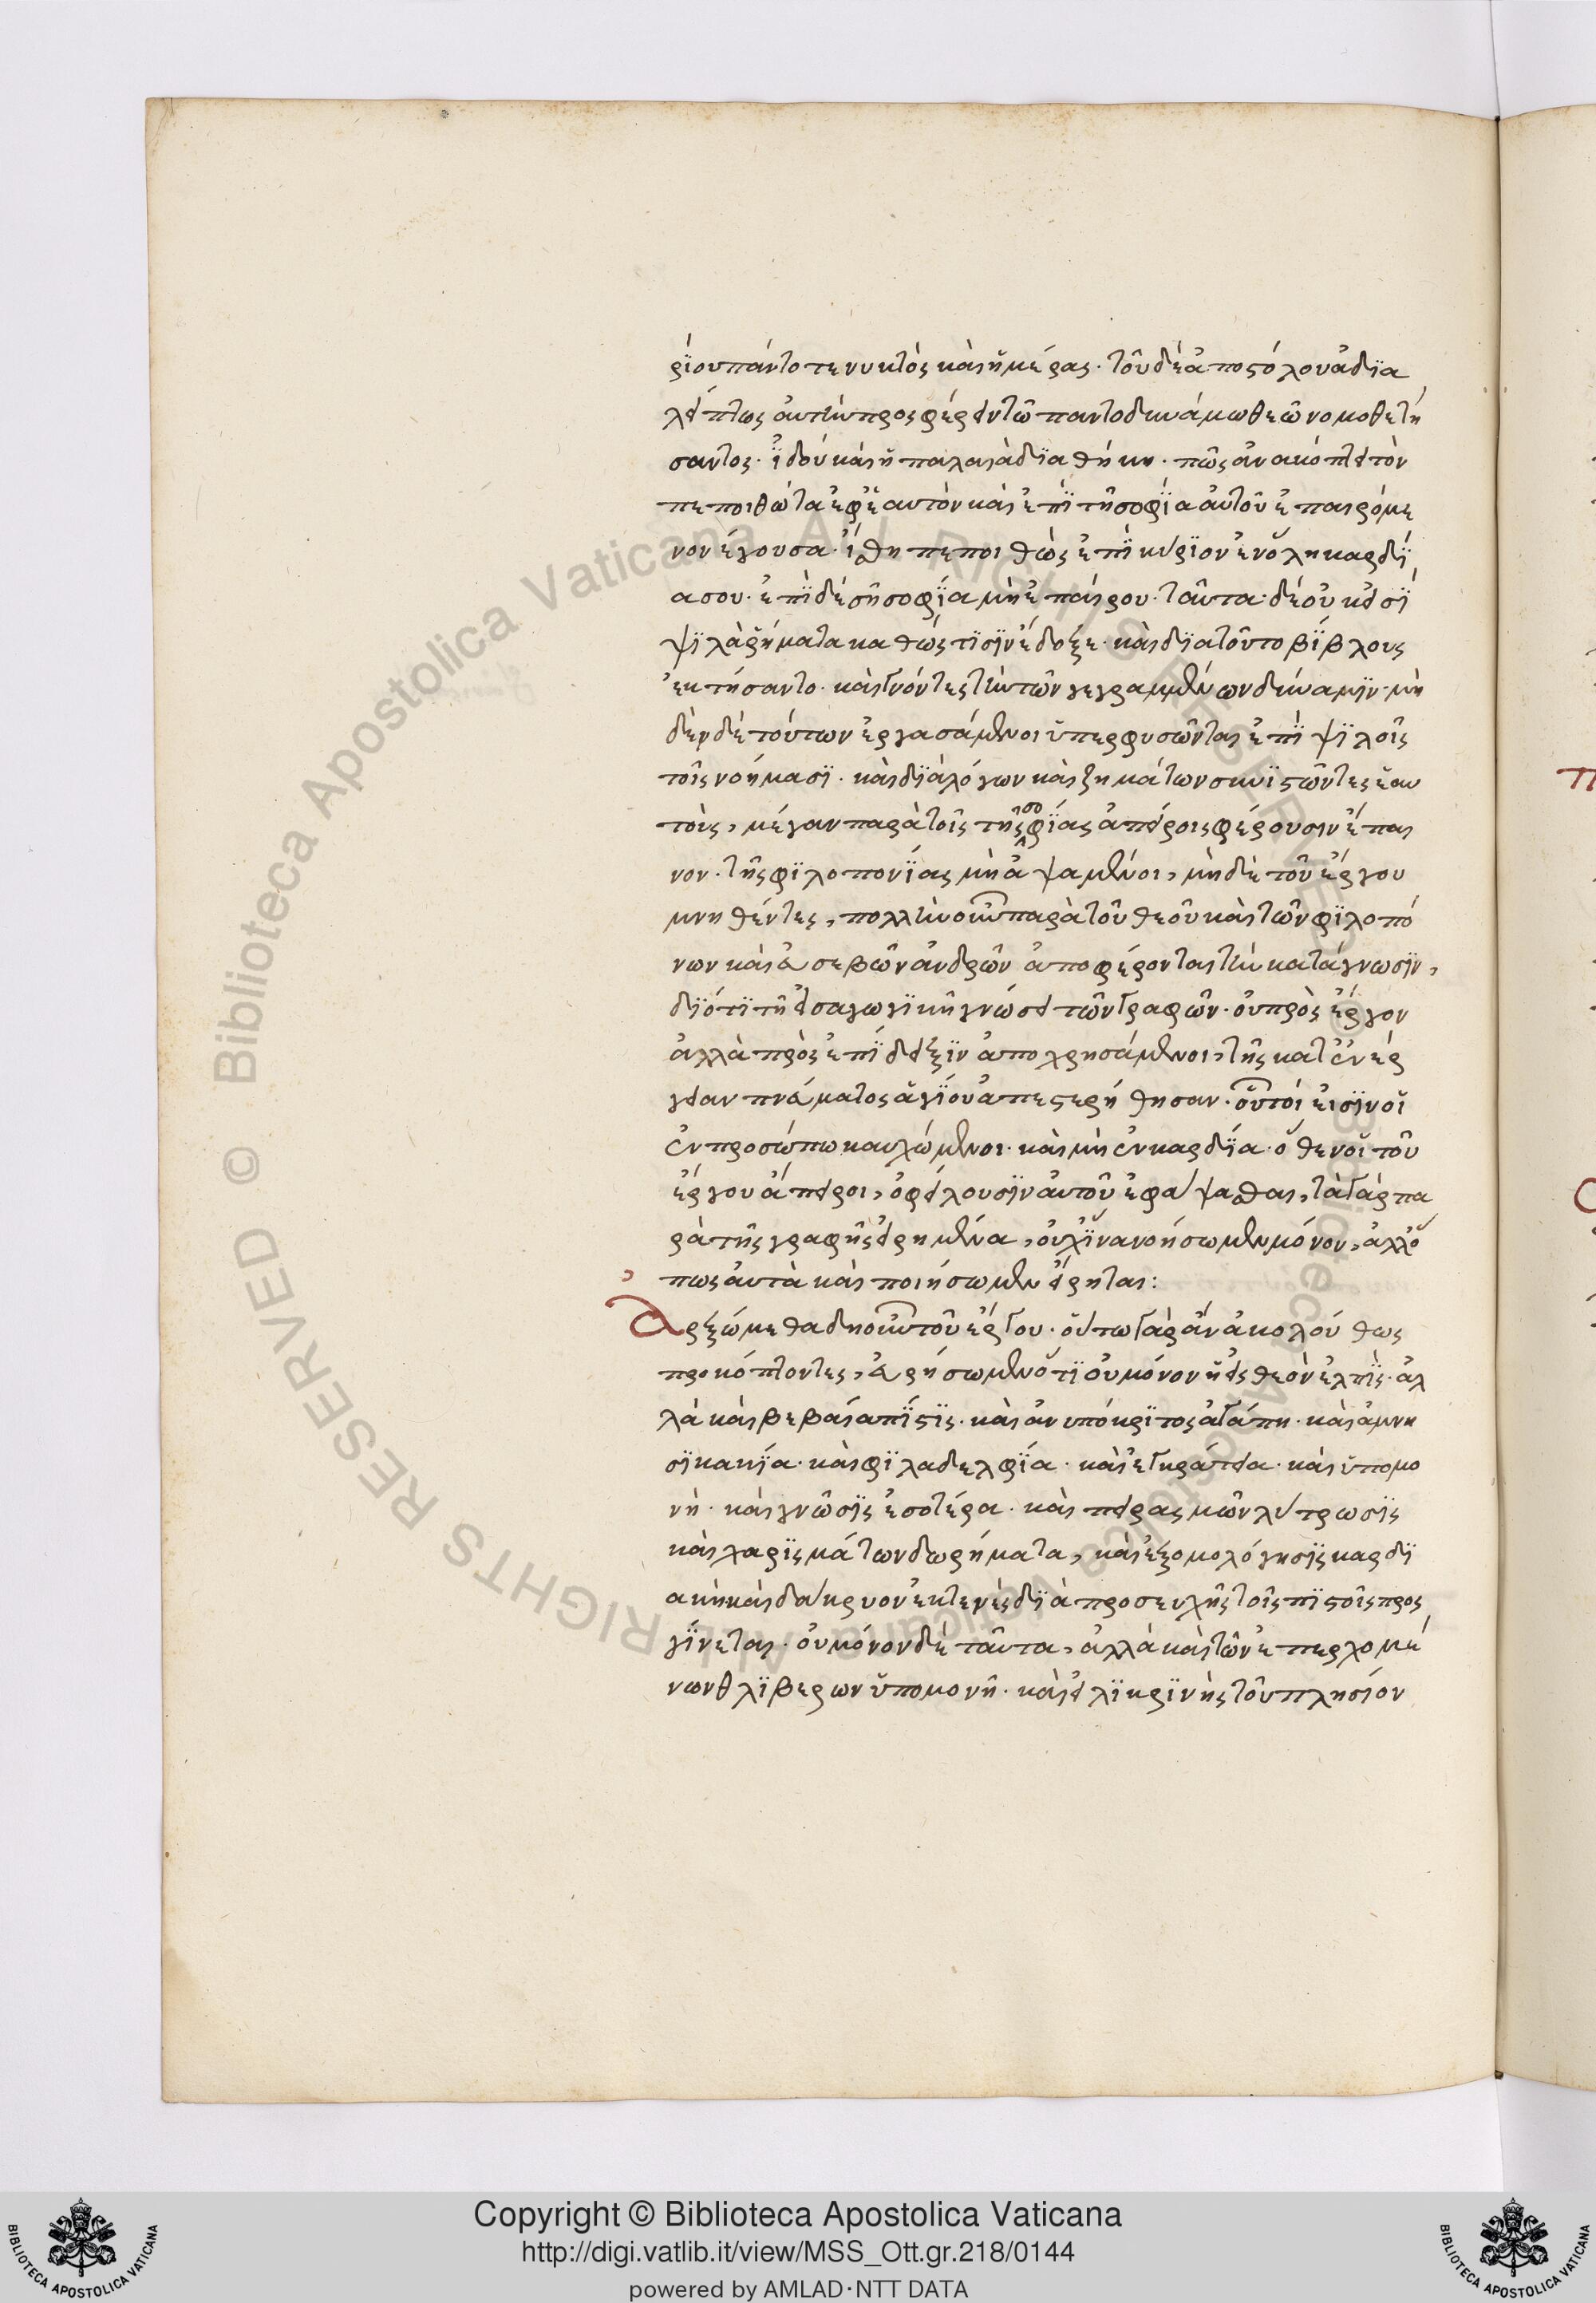 ρίου πάντοτε νυκτὸς καὶ ἡμέρας· τοῦ δὲ ἀποστόλου ἀδια
λείπτως αὐτὴν προσφέρειν τῶ παντοδυνάμω θεῶ νομοθετή
σαντος· ἰδοὺ καὶ ἡ παλαιὰ διαθήκη· πῶς ἀνακόπτει τὸν
πεποιθῶτα ἐφ' ἑαυτὸν καὶ ἐπὶ τῆ σοφία αὐτοῦ ἐπαιρόμε
νον λέγουσα· ἴσθη πεποιθὼς ἐπὶ κύριον ἐν ὅλη καρδί
α σου· ἐπὶ δὲ σῆ σοφία μὴ ἐπαίρου· ταῦτα δὲ οὐκ εἰσὶ
ψιλὰ ῥήματα καθώς τισιν ἔδοξε· καὶ διατοῦτο βίβλους
ἐκτήσαντο· καὶ γνόντες τὴν τῶν γεγραμμένων δύναμιν· μη
δὲν δὲ τούτων ἐργασάμενοι ὑπερφυσῶνται ἐπὶ ψιλοῖς
τοῖς νοήμασι· καὶ διὰ λόγων καὶ ζημάτων συνιστῶντες ἑαυ
τοὺς, μέγαν παρὰ τοῖς τῆς σοφίας ἀπείροις φέρουσιν ἔπαι
νον· τῆς φιλοπονίας μὴ ἁψαμένοι, μηδὲ τοῦ ἔργου
μνηθέντες, πολλὴν οὖν παρὰ τοῦ θεοῦ καὶ τῶν φιλοπό
νων καὶ εὐσεβῶν ἀνδρῶν ἀποφέρονται τὴν κατάγνωσιν,
διότι τῆ εἰσαγωγικῆ γνώσει τῶν γραφῶν· οὐ πρὸς ἔργον
ἀλλὰ πρὸς ἐπίδειξιν ἀποχρησάμενοι, τῆς κατ' ἐνέρ
γειαν πνεύματος ἁγίου ἀπεστερήθησαν· οὗτοί εἰσιν οἱ
ἐν προσώπω καυχώμενοι· καὶ μὴ ἐν καρδία· ὅθεν οἱ τοῦ
ἔργου ἄπειροι, ὀφείλουσιν αὐτοῦ ἐφάψασθαι, τὰ γὰρ πα
ρὰ τῆς γραφῆς εἰρημένα, οὐχ ἵνα νοήσωμεν μόνον, ἀλλ' ὅ
πως αὐτὰ καὶ ποιήσωμεν εἴρηται:
Ἀρξώμεθα δὴ οὖν τοῦ ἔργου· οὕτω γὰρ ἂν ἀκολούθως
προκόπτοντες, εὑρήσωμεν ὅτι οὐ μόνον ἡ εἰς θεὸν ἐλπὶς· ἀλ
λὰ καὶ βεβαία πίστις· καὶ ἀνυπόκριτος ἀγάπη· καὶ ἀμνη
σικακία· καὶ φιλαδελφία· καὶ ἐγκράτεια· καὶ ὑπομο
νὴ· καὶ γνῶσις ἐσοτέρα· καὶ πειρασμῶν λύτρωσις
καὶ χαρισμάτων δωρήματα, καὶ ἐξομολόγησις καρδι
ακὴ καὶ δάκρυον ἐκτενὲς διὰ προσευχῆς τοῖς πιστοῖς προς
γίνεται· οὐ μόνον δὲ ταῦτα, ἀλλὰ καὶ τῶν ἐπερχομέ
νων θλιβερων ὑπομονῆ· καὶ εἰλικρινὴς τοῦ πλησίον